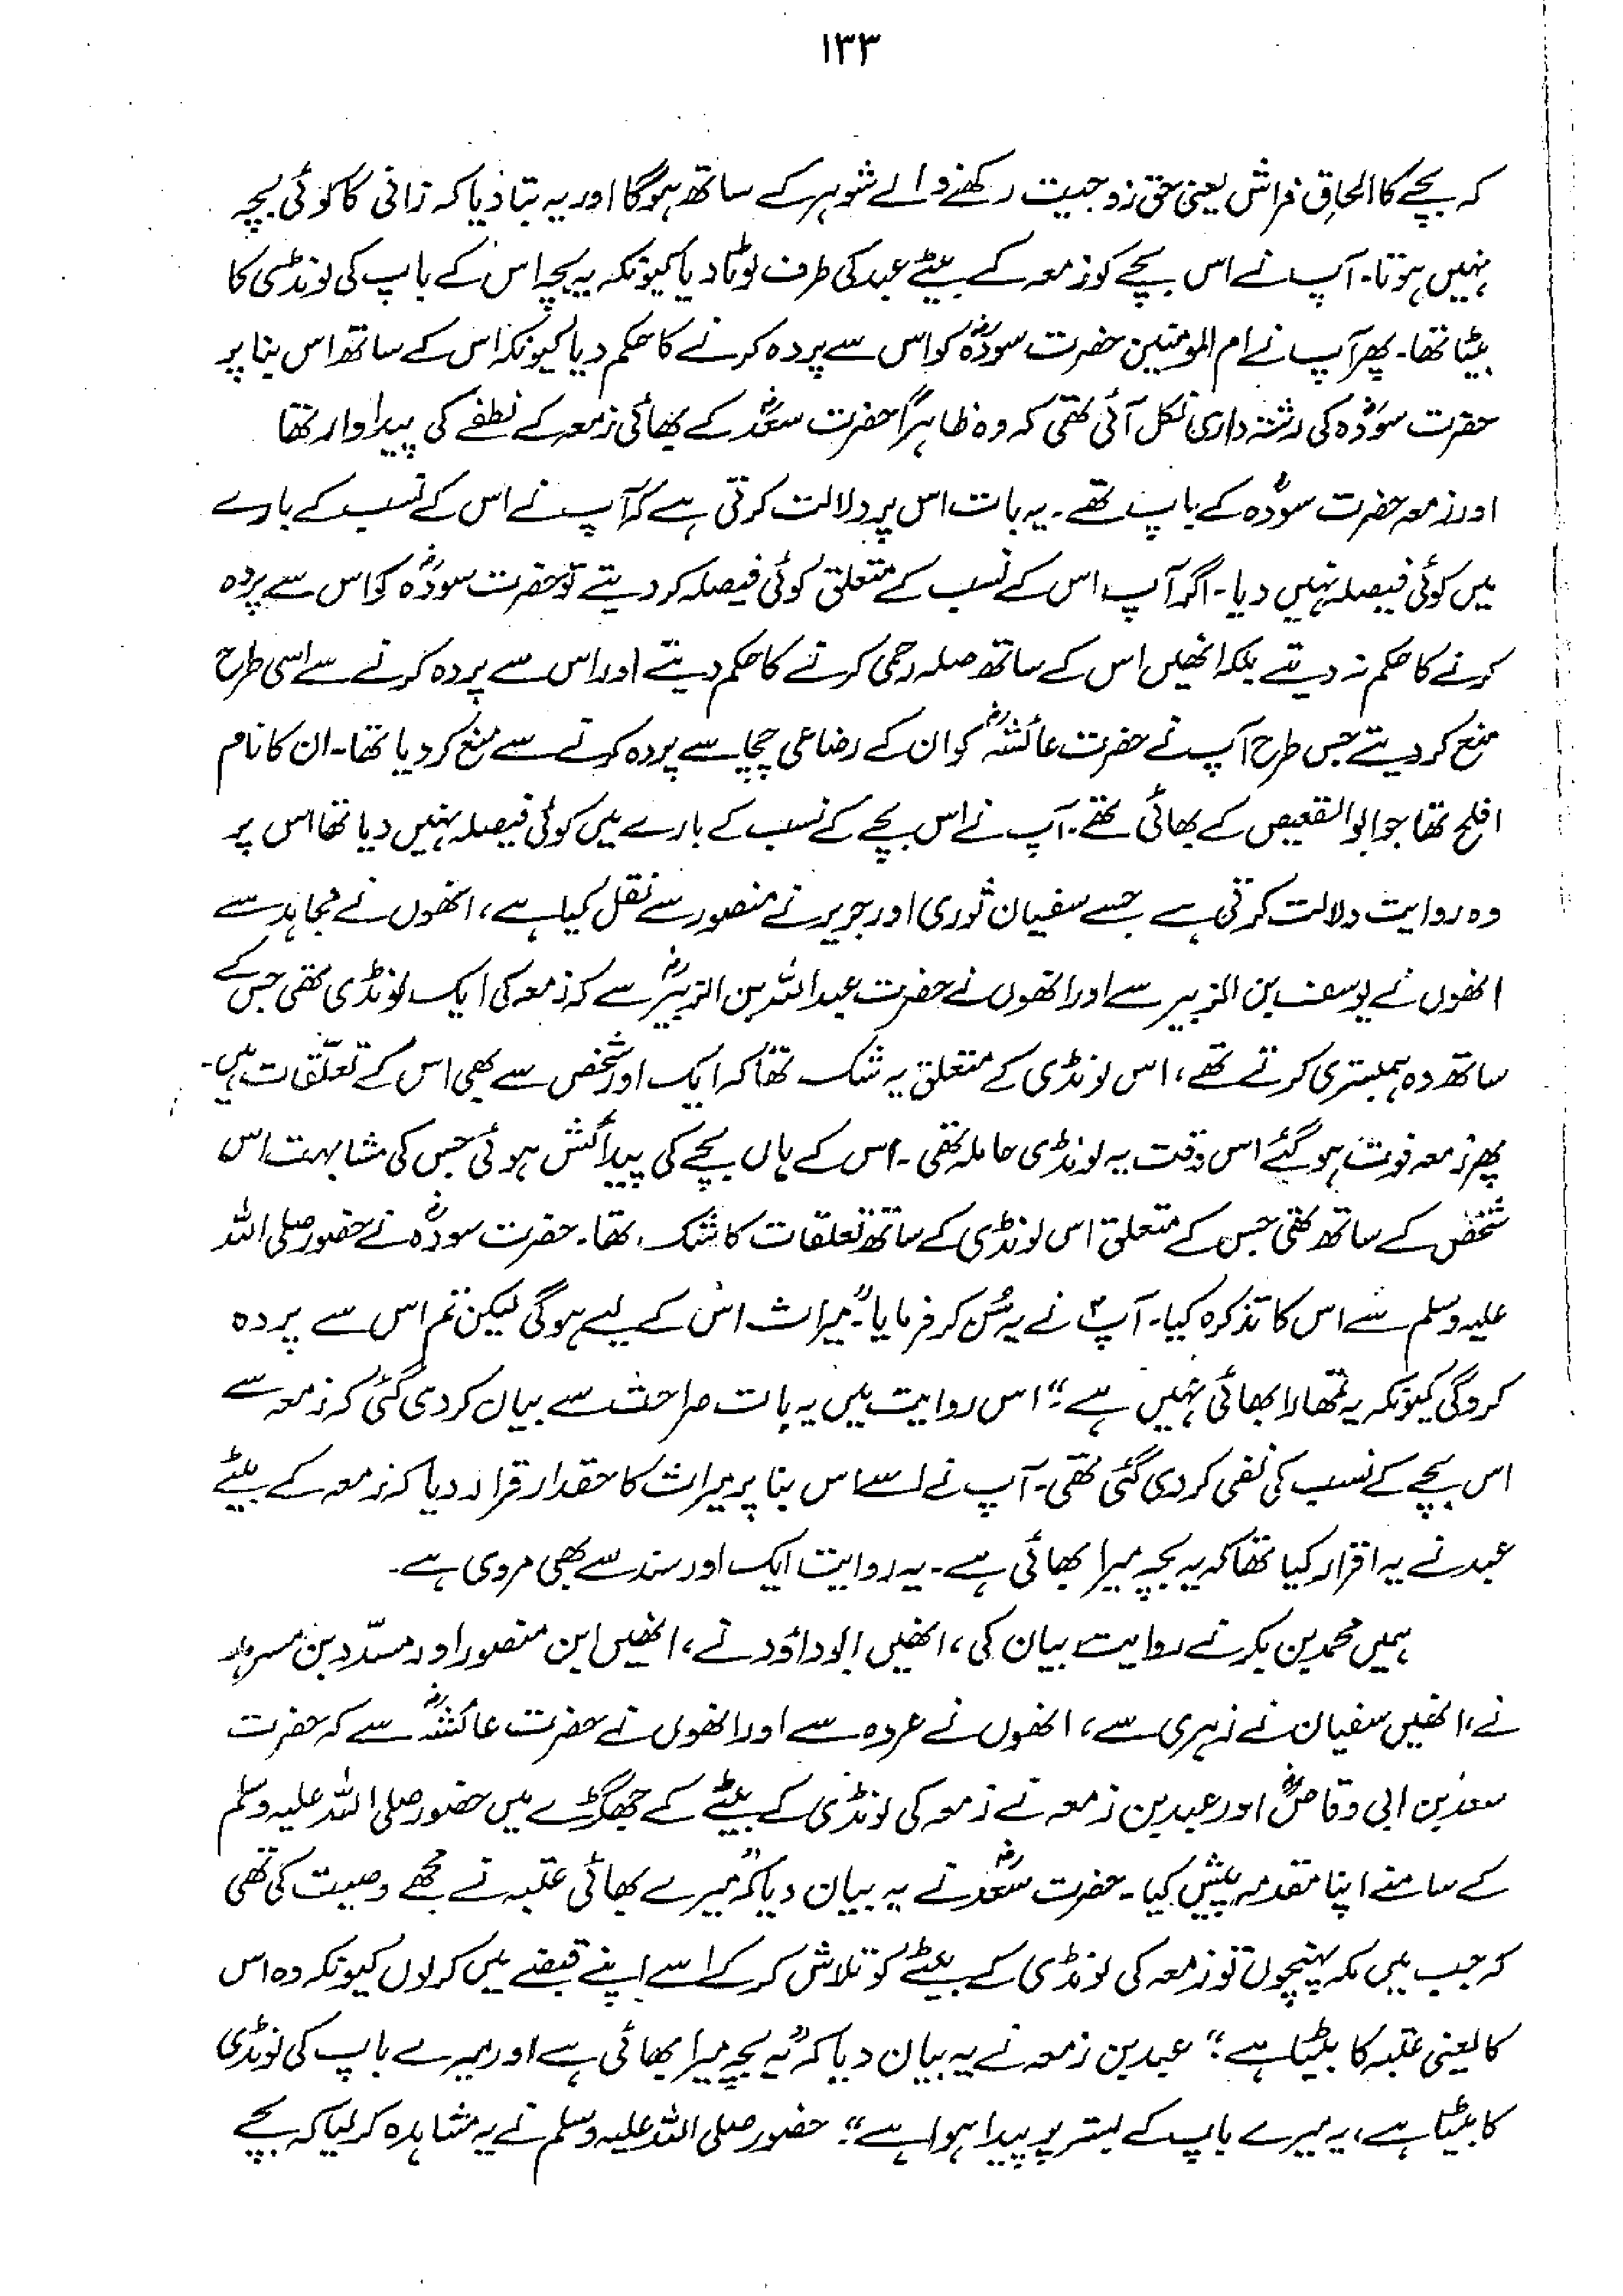 ۱۳۳
کہ بچے کا الحاق فراش یعنی حق زوجیت رکھنے والے شوہر کے ساتھ ہوگا اور یہ بتا دیا کہ زانی کا کوئی بچہ
نہیں ہوتا۔ آپ نے اس بچے کو زمعہ کے بیٹے عبد کی طرف لوٹا دیا کیونکہ یہ بچہ اس کے باپ کی لونڈی کا
بیٹا تھا۔ پھر آپ نے ام المومنین حضرت سودہؓ کو اس سے پردہ کرنے کا حکم دیا کیونکہ اس کے ساتھ اس بنا پر
حضرت سودہؓ کی رشتہ داری نکل آئی تھی کہ وہ ظاہراً حضرت سعدؓ کے بھائی زمعہ کے نطفے کی پیداوار تھا
اور زمعہ حضرت سودہؓ کے باپ تھے۔ یہ بات اس پر دلالت کرتی ہے کہ آپ نے اس کے نسب کے بارے
میں کوئی فیصلہ نہیں دیا۔ اگر آپ اس کے نسب کے متعلق کوئی فیصلہ کر دیتے تو حضرت سودہؓ کو اس سے پردہ
کرنے کا حکم نہ دیتے بلکہ انھیں اس کے ساتھ صلہ رحمی کرنے کا حکم دیتے اور اس سے پردہ کرنے سے اسی طرح
منع کر دیتے جس طرح آپ نے حضرت عائشہؓ کو ان کے رضاعی چچا سے پردہ کرنے سے منع کر دیا تھا۔ ان کا نام
افلح تھا جو ابوالقعیص کے بھائی تھے۔ آپ نے اس بچے کے نسب کے بارے میں کوئی فیصلہ نہیں دیا تھا اس پر
وہ روایت دلالت کرتی ہے جسے سفیان ثوری اور جریر نے منصور سے نقل کیا ہے، انھوں نے مجاہد سے
انھوں نے یوسف بن الزبیر سے اور انھوں نے حضرت عبداللہ بن الزبیرؓ سے کہ زمعہ کی ایک لونڈی تھی جس کے
ساتھ وہ ہمبستری کرتے تھے، اس لونڈی کے متعلق یہ شک تھا کہ ایک اور شخص سے بھی اس کے تعلّقات ہیں۔
پھر زمعہ فوت ہو گئے اس وقت یہ لونڈی حاملہ تھی۔ اس کے ہاں بچے کی پیدائش ہوئی جس کی مشابہت اس
شخص کے ساتھ تھی جس کے متعلق اس لونڈی کے ساتھ تعلقات کا شک تھا۔ حضرت سودہؓ نے حضور صلی اللہ
علیہ وسلم سے اس کا تذکرہ کیا۔ آپؐ نے یہ سُن کر فرمایا۔ ”میراث اس کے لیے ہوگی لیکن تم اس سے پردہ
کروگی کیونکہ یہ تمھارا بھائی نہیں ہے“۔ اس روایت میں یہ بات صراحت سے بیان کر دی گئی کہ زمعہ سے
اس بچے کے نسب کی نفی کر دی گئی تھی۔ آپ نے اسے اس بنا پر میراث کا حقدار قرار دیا کہ زمعہ کے بیٹے
عبد نے یہ اقرار کیا تھا کہ یہ بچہ میرا بھائی ہے۔ یہ روایت ایک اور سند سے بھی مروی ہے۔
ہمیں محمد بن بکر نے روایت بیان کی، انھیں ابو داؤد نے، انھیں ابن منصور اور مسدّد بن مسرہد
نے، انھیں سفیان نے زہری سے، انھوں نے عروہ سے اور انھوں نے حضرت عائشہؓ سے کہ حضرت
سعد بن ابی وقاصؓ اور عبد بن زمعہ نے زمعہ کی لونڈی کے بیٹے کے جھگڑے میں حضور صلی اللہ علیہ وسلم
کے سامنے اپنا مقدمہ پیش کیا۔ حضرت سعدؓ نے یہ بیان دیا کہ ”میرے بھائی عتبہ نے مجھے وصیت کی تھی
کہ جب میں مکہ پہنچوں تو زمعہ کی لونڈی کے بیٹے کو تلاش کر کے اسے اپنے قبضے میں کر لوں کیونکہ وہ اس
کا یعنی عتبہ کا بیٹا ہے“۔ عبد بن زمعہ نے یہ بیان دیا کہ ”یہ بچہ میرا بھائی ہے اور میرے باپ کی لونڈی
کا بیٹا ہے، یہ میرے باپ کے بستر پر پیدا ہوا ہے“۔ حضور صلی اللہ علیہ وسلم نے یہ مشاہدہ کر لیا کہ بچے